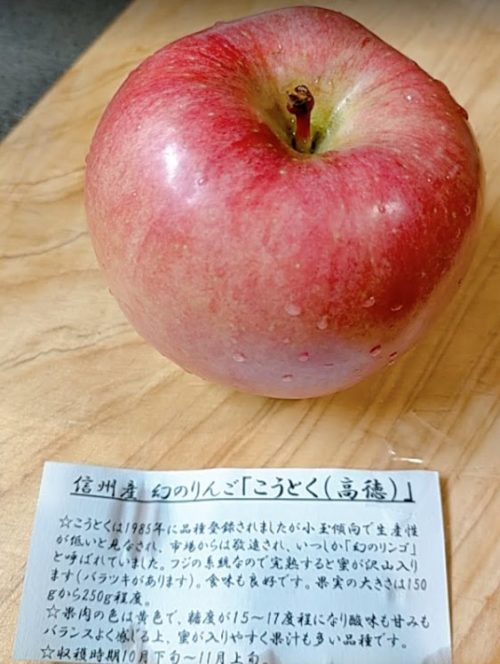 信州産 幻のりんご「こうとく(高徳)」
☆こうとくは1985年に品種登録されましたが小玉傾向で生産性
が低いと見なされ、市場からは敬遠され、いつしか「幻のリンゴ」
と呼ばれていました。フジの系統なので完熟すると蜜が沢山入り
ます(バラツキがあります)。食味も良好です。果実の大きさは150
gから250g程度。
☆果肉の色は黄色で、糖度が15～17度程になり酸味も甘みも
バランスよく感じる上、蜜が入りやすく果汁も多い品種です。
☆収穫時期10月下旬～11月上旬。